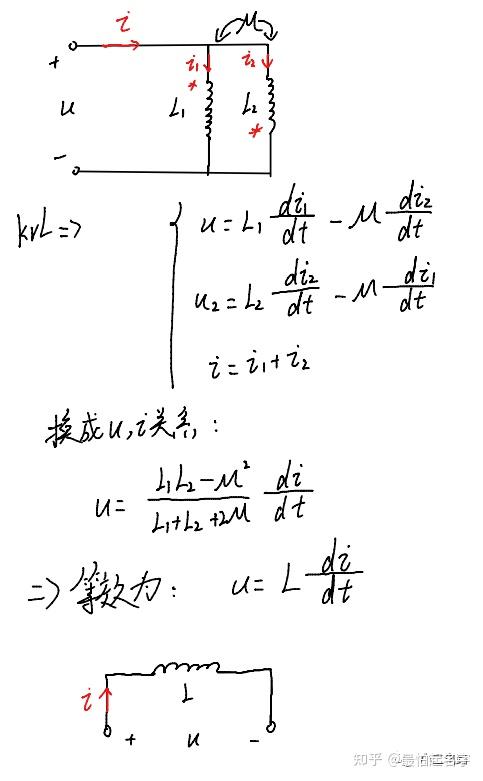 i
M
+
i₁
i₂
*
u
L₁
L₂
*
-
KVL=>
u = L₁ di₁/dt - M di₂/dt
u₂ = L₂ di₂/dt - M di₁/dt
i = i₁ + i₂
换成u,i关系:
u = (L₁L₂ - M²)/(L₁+L₂+2M) di/dt
=> 等效为: u = L di/dt
i
L
+ u -
知乎 @最怕起名字